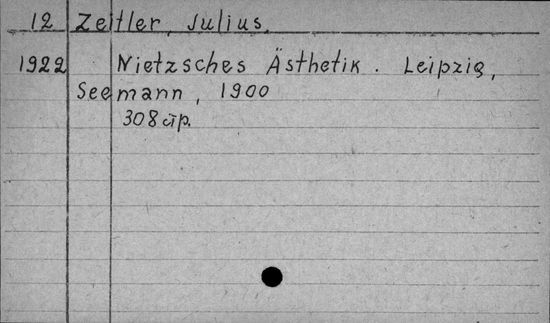 12 Zeitler, Julius.
1922 Nietzsches Ästhetik. Leipzig,
Seemann, 1900
308 стр.